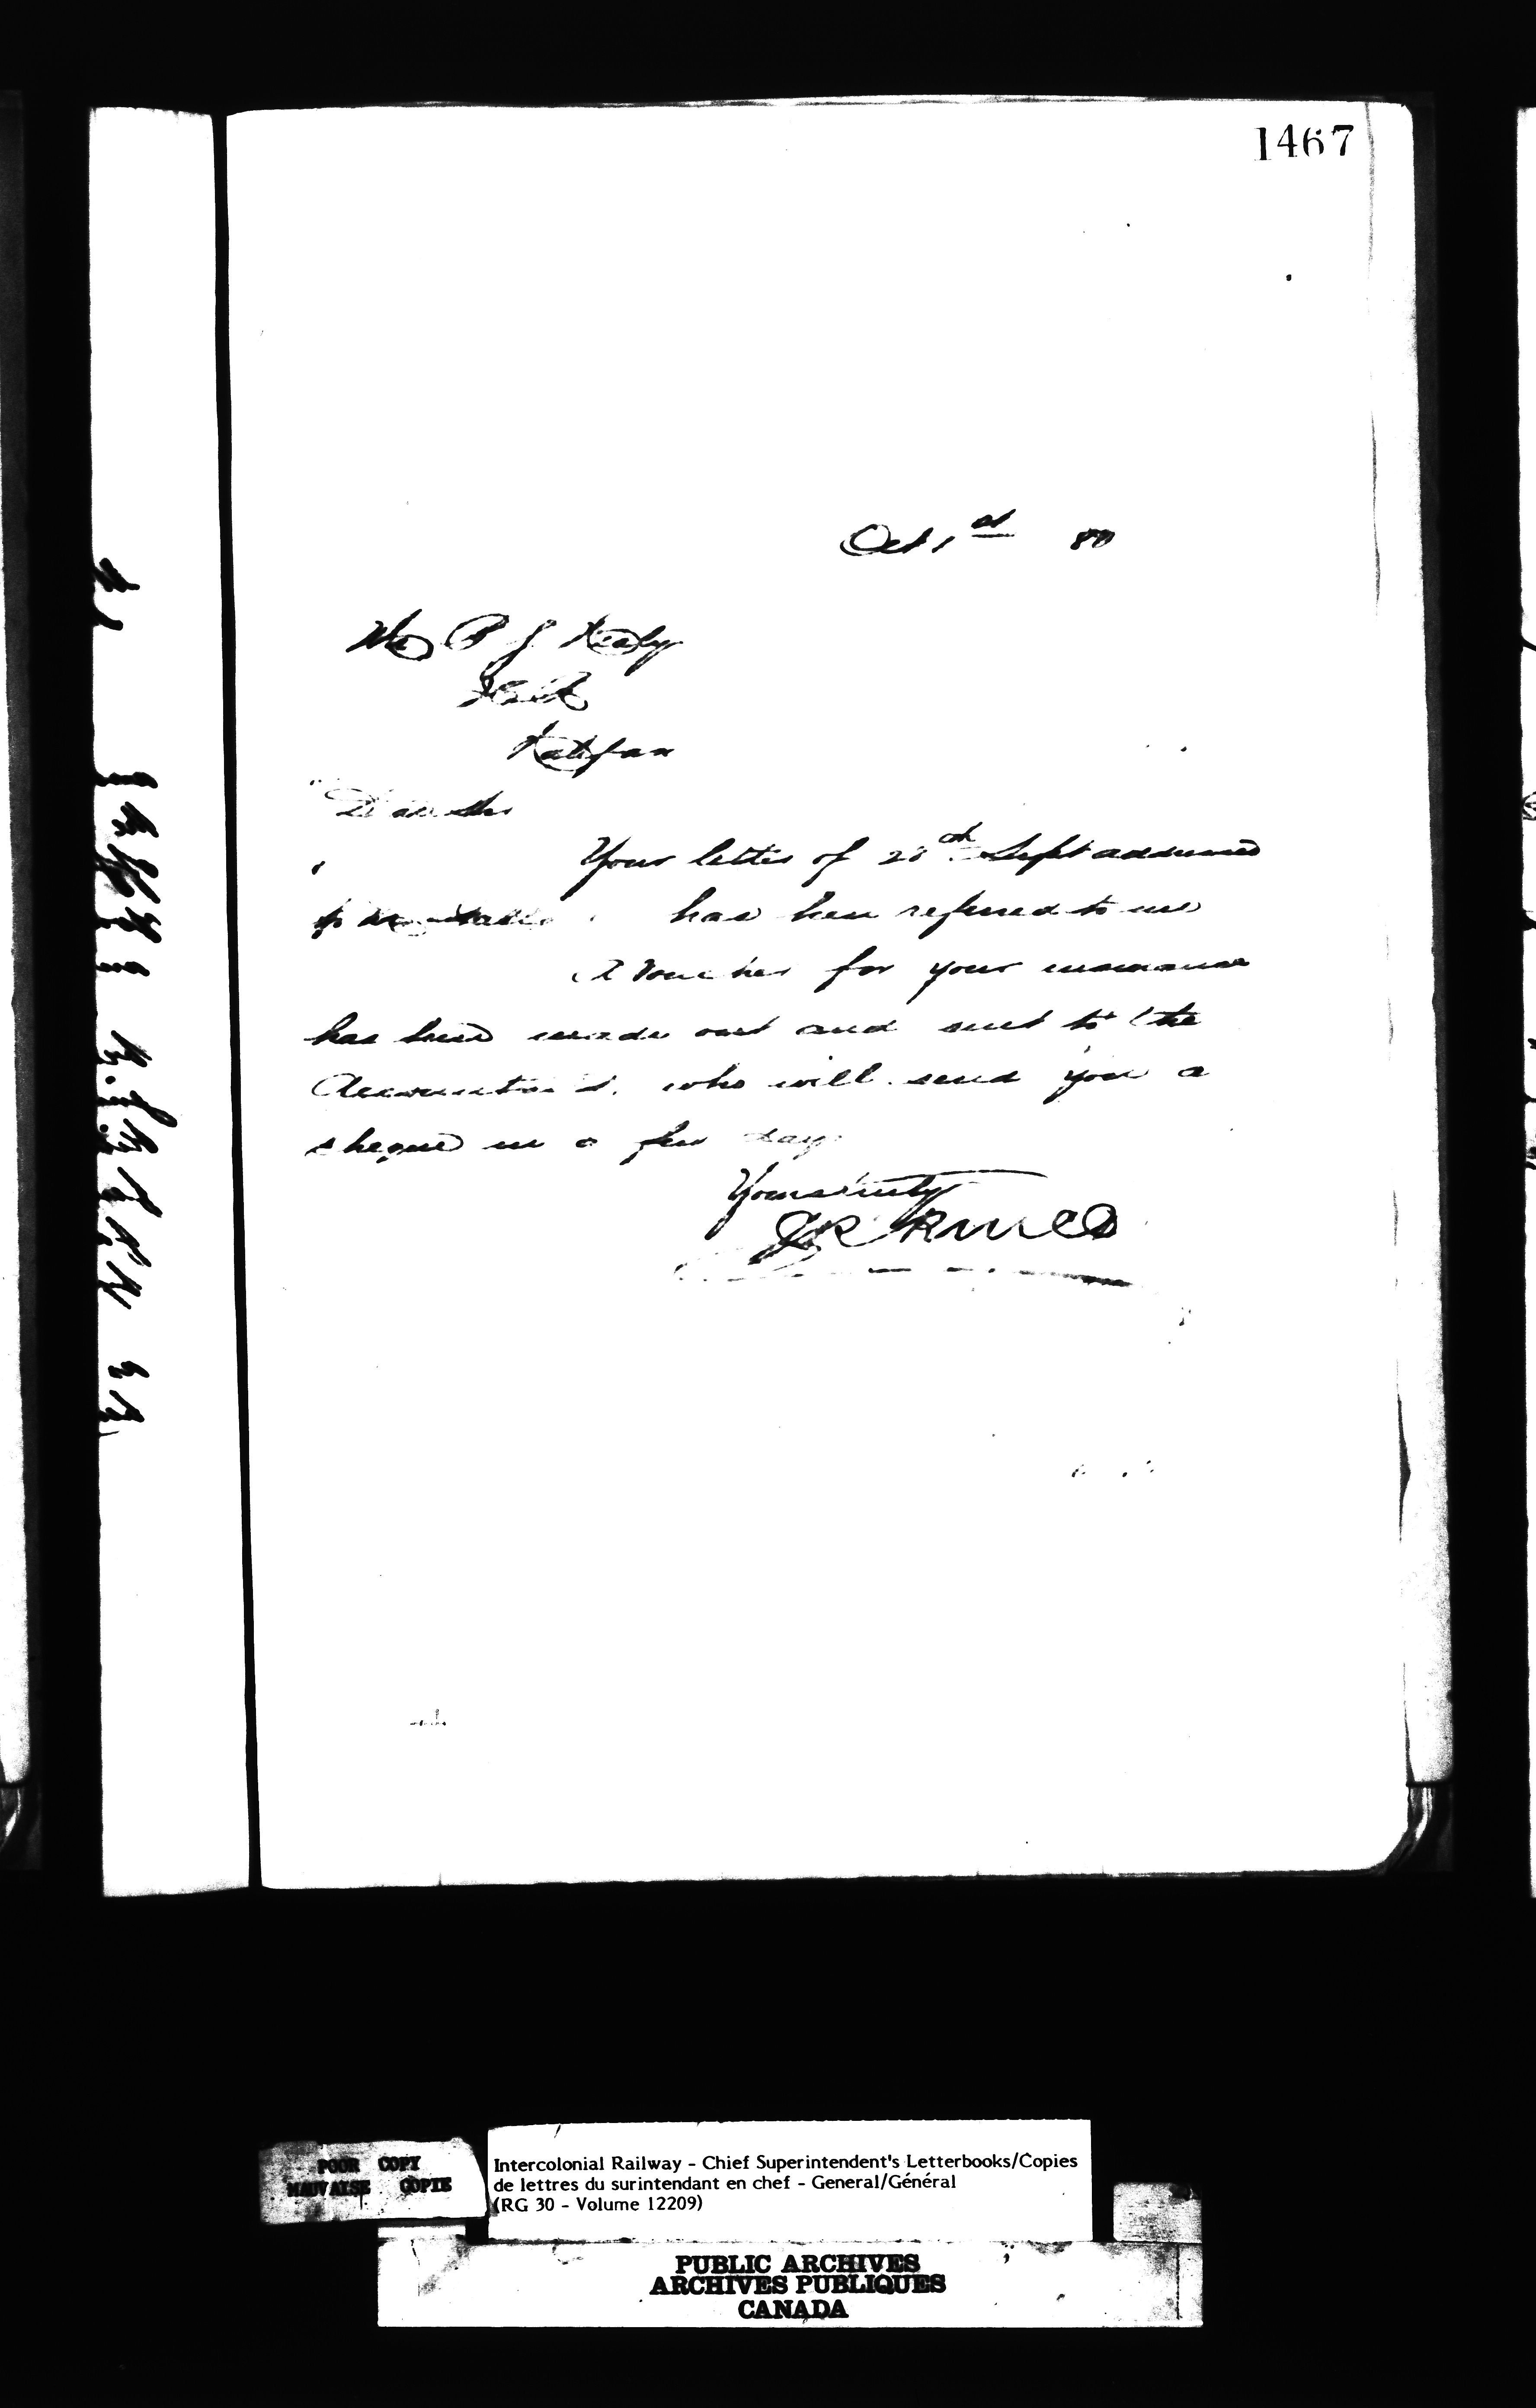 1467
Oct 1st 80
Mr P J Healy
Halifax
Dear Sir
Your letter of 28th Sept addressed
to Mr has been referred to me
A Voucher for your
has been made out and sent to the
who will send you a
cheque in a few days
Yours truly
POOR COPY
MAUVAISE COPIE
Intercolonial Railway - Chief Superintendent's Letterbooks/Copies
de lettres du surintendant en chef - General/Général
(RG 30 - Volume 12209)
PUBLIC ARCHIVES
ARCHIVES PUBLIQUES
CANADA